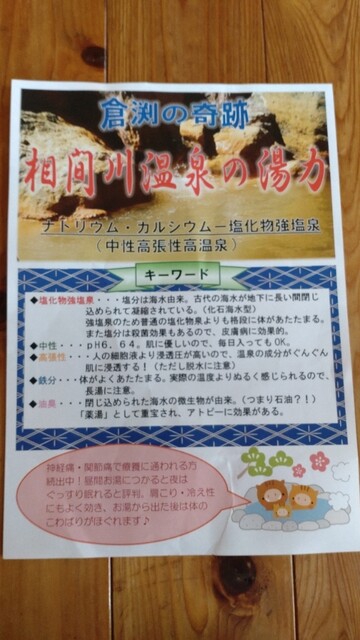 倉渕の奇跡
相間川温泉の湯力
ナトリウム・カルシウム－塩化物強塩泉
（中性高張性高温泉）
キーワード
◆塩化物強塩泉・・・塩分は海水由来。古代の海水が地下に長い間閉じ
込められて凝縮されている。（化石海水型）
強塩泉のため普通の塩化物泉よりも格段に体があたたまる。
また塩分は殺菌効果もあるので、皮膚病に効果的。
◆中性・・・ｐＨ６．６４。肌に優しいので、毎日入ってもＯＫ。
◆高張性・・・人の細胞液より浸透圧が高いので、温泉の成分がぐんぐん
肌に浸透する！（ただし脱水に注意）
◆鉄分・・・体がよくあたたまる。実際の温度よりぬるく感じられるので、
長湯に注意。
◆油臭・・・閉じ込められた海水の微生物が由来。（つまり石油？！）
「薬湯」として重宝され、アトピーに効果がある。
神経痛・関節痛で療養に通われる方
続出中！昼間お湯につかると夜は
ぐっすり眠れると評判。肩こり・冷え性
にもよく効き、お湯から出た後は体の
こわばりがほぐれます♪